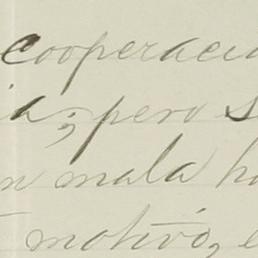 cooperació
a; pero s
n mala ho
motivó, e